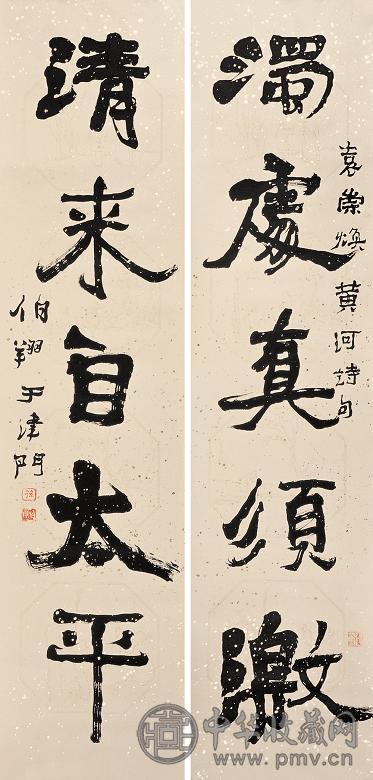 袁崇煥黃河詩句
濁處真須激
清來自太平
伯翔于津門
中华收藏网
www.pmv.cn